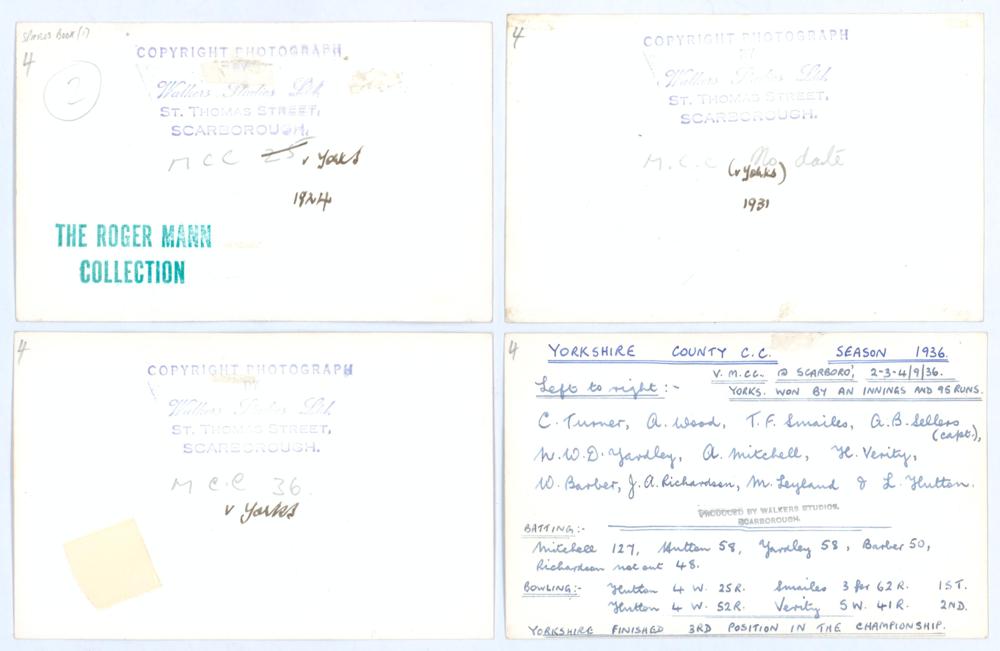 SLIPS BOOK (1)
4
2
COPYRIGHT PHOTOGRAPH
BY
Walkers Studios Ltd.
ST. THOMAS STREET,
SCARBOROUGH.
MCC 25 v Yorks
1924
THE ROGER MANN
COLLECTION
4
COPYRIGHT PHOTOGRAPH
BY
Walkers Studios Ltd.
ST. THOMAS STREET,
SCARBOROUGH.
M.C.C No date
(v Yorks)
1931
4
COPYRIGHT PHOTOGRAPH
BY
Walkers Studios Ltd.
ST. THOMAS STREET,
SCARBOROUGH.
M C.C 36.
v Yorks
4
YORKSHIRE COUNTY C.C. SEASON 1936.
V. M.CC. @ SCARBORO', 2-3-4/9/36.
Left to right :- YORKS. WON BY AN INNINGS AND 95 RUNS.
C. Turner, A. Wood, T.F. Smailes, A.B. Sellers
(capt.),
N.W.D. Yardley, A. Mitchell, H. Verity,
W. Barber, J.A. Richardson, M. Leyland & L. Hutton.
PRODUCED BY WALKERS STUDIOS.
SCARBOROUGH.
BATTING:-
Mitchell 127, Hutton 58, Yardley 58, Barber 50,
Richardson not out 48.
BOWLING:- Hutton 4 W. 25R. Smailes 3 for 62 R. 1ST.
Hutton 4 W. 52R. Verity 5 W. 41R. 2ND.
YORKSHIRE FINISHED 3RD POSITION IN THE CHAMPIONSHIP.